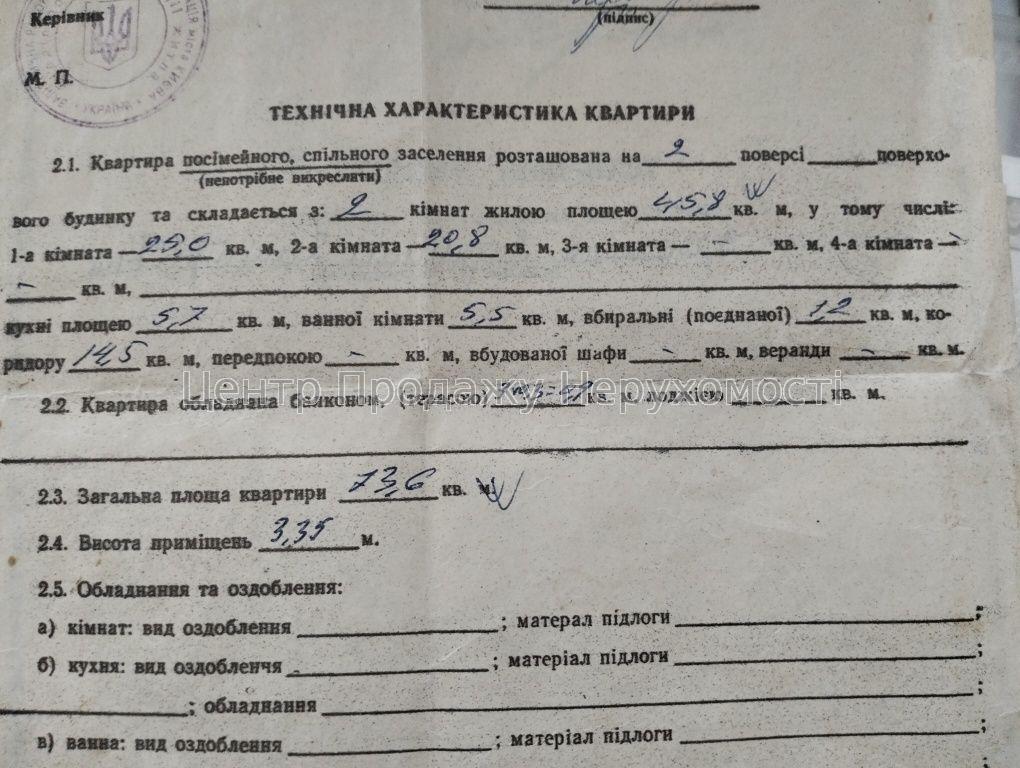 Керівник
(підпис)
М. П.
УКРАЇНА
ТЕХНІЧНА ХАРАКТЕРИСТИКА КВАРТИРИ
2.1. Квартира посімейного, спільного заселення розташована на 2 поверсі ____ поверхо-
(непотрібне викреслити)
вого будинку та складається з: 2 кімнат жилою площею 45,8 кв. м, у тому числі:
1-а кімната — 25,0 кв. м, 2-а кімната — 20,8 кв. м, 3-я кімната — – кв. м, 4-а кімната —
– кв. м,
кухні площею 5,7 кв. м, ванної кімнати 5,5 кв. м, вбиральні (поєднаної) 1,2 кв. м, ко-
ридору 14,5 кв. м, передпокою – кв. м, вбудованої шафи – кв. м, веранди – кв. м.
Центр Продажу Нерухомості
2.2. Квартира обладнана балконом, (терасою) кв. м, лоджією ____ кв. м.
2.3. Загальна площа квартири 73,6 кв. м.
2.4. Висота приміщень 3,35 м.
2.5. Обладнання та оздоблення:
а) кімнат: вид оздоблення ____; матерал підлоги ____;
б) кухня: вид оздобленчя ____; матеріал підлоги ____;
____; обладнання ____;
в) ванна: вид оздоблення ____; матеріал підлоги ____;